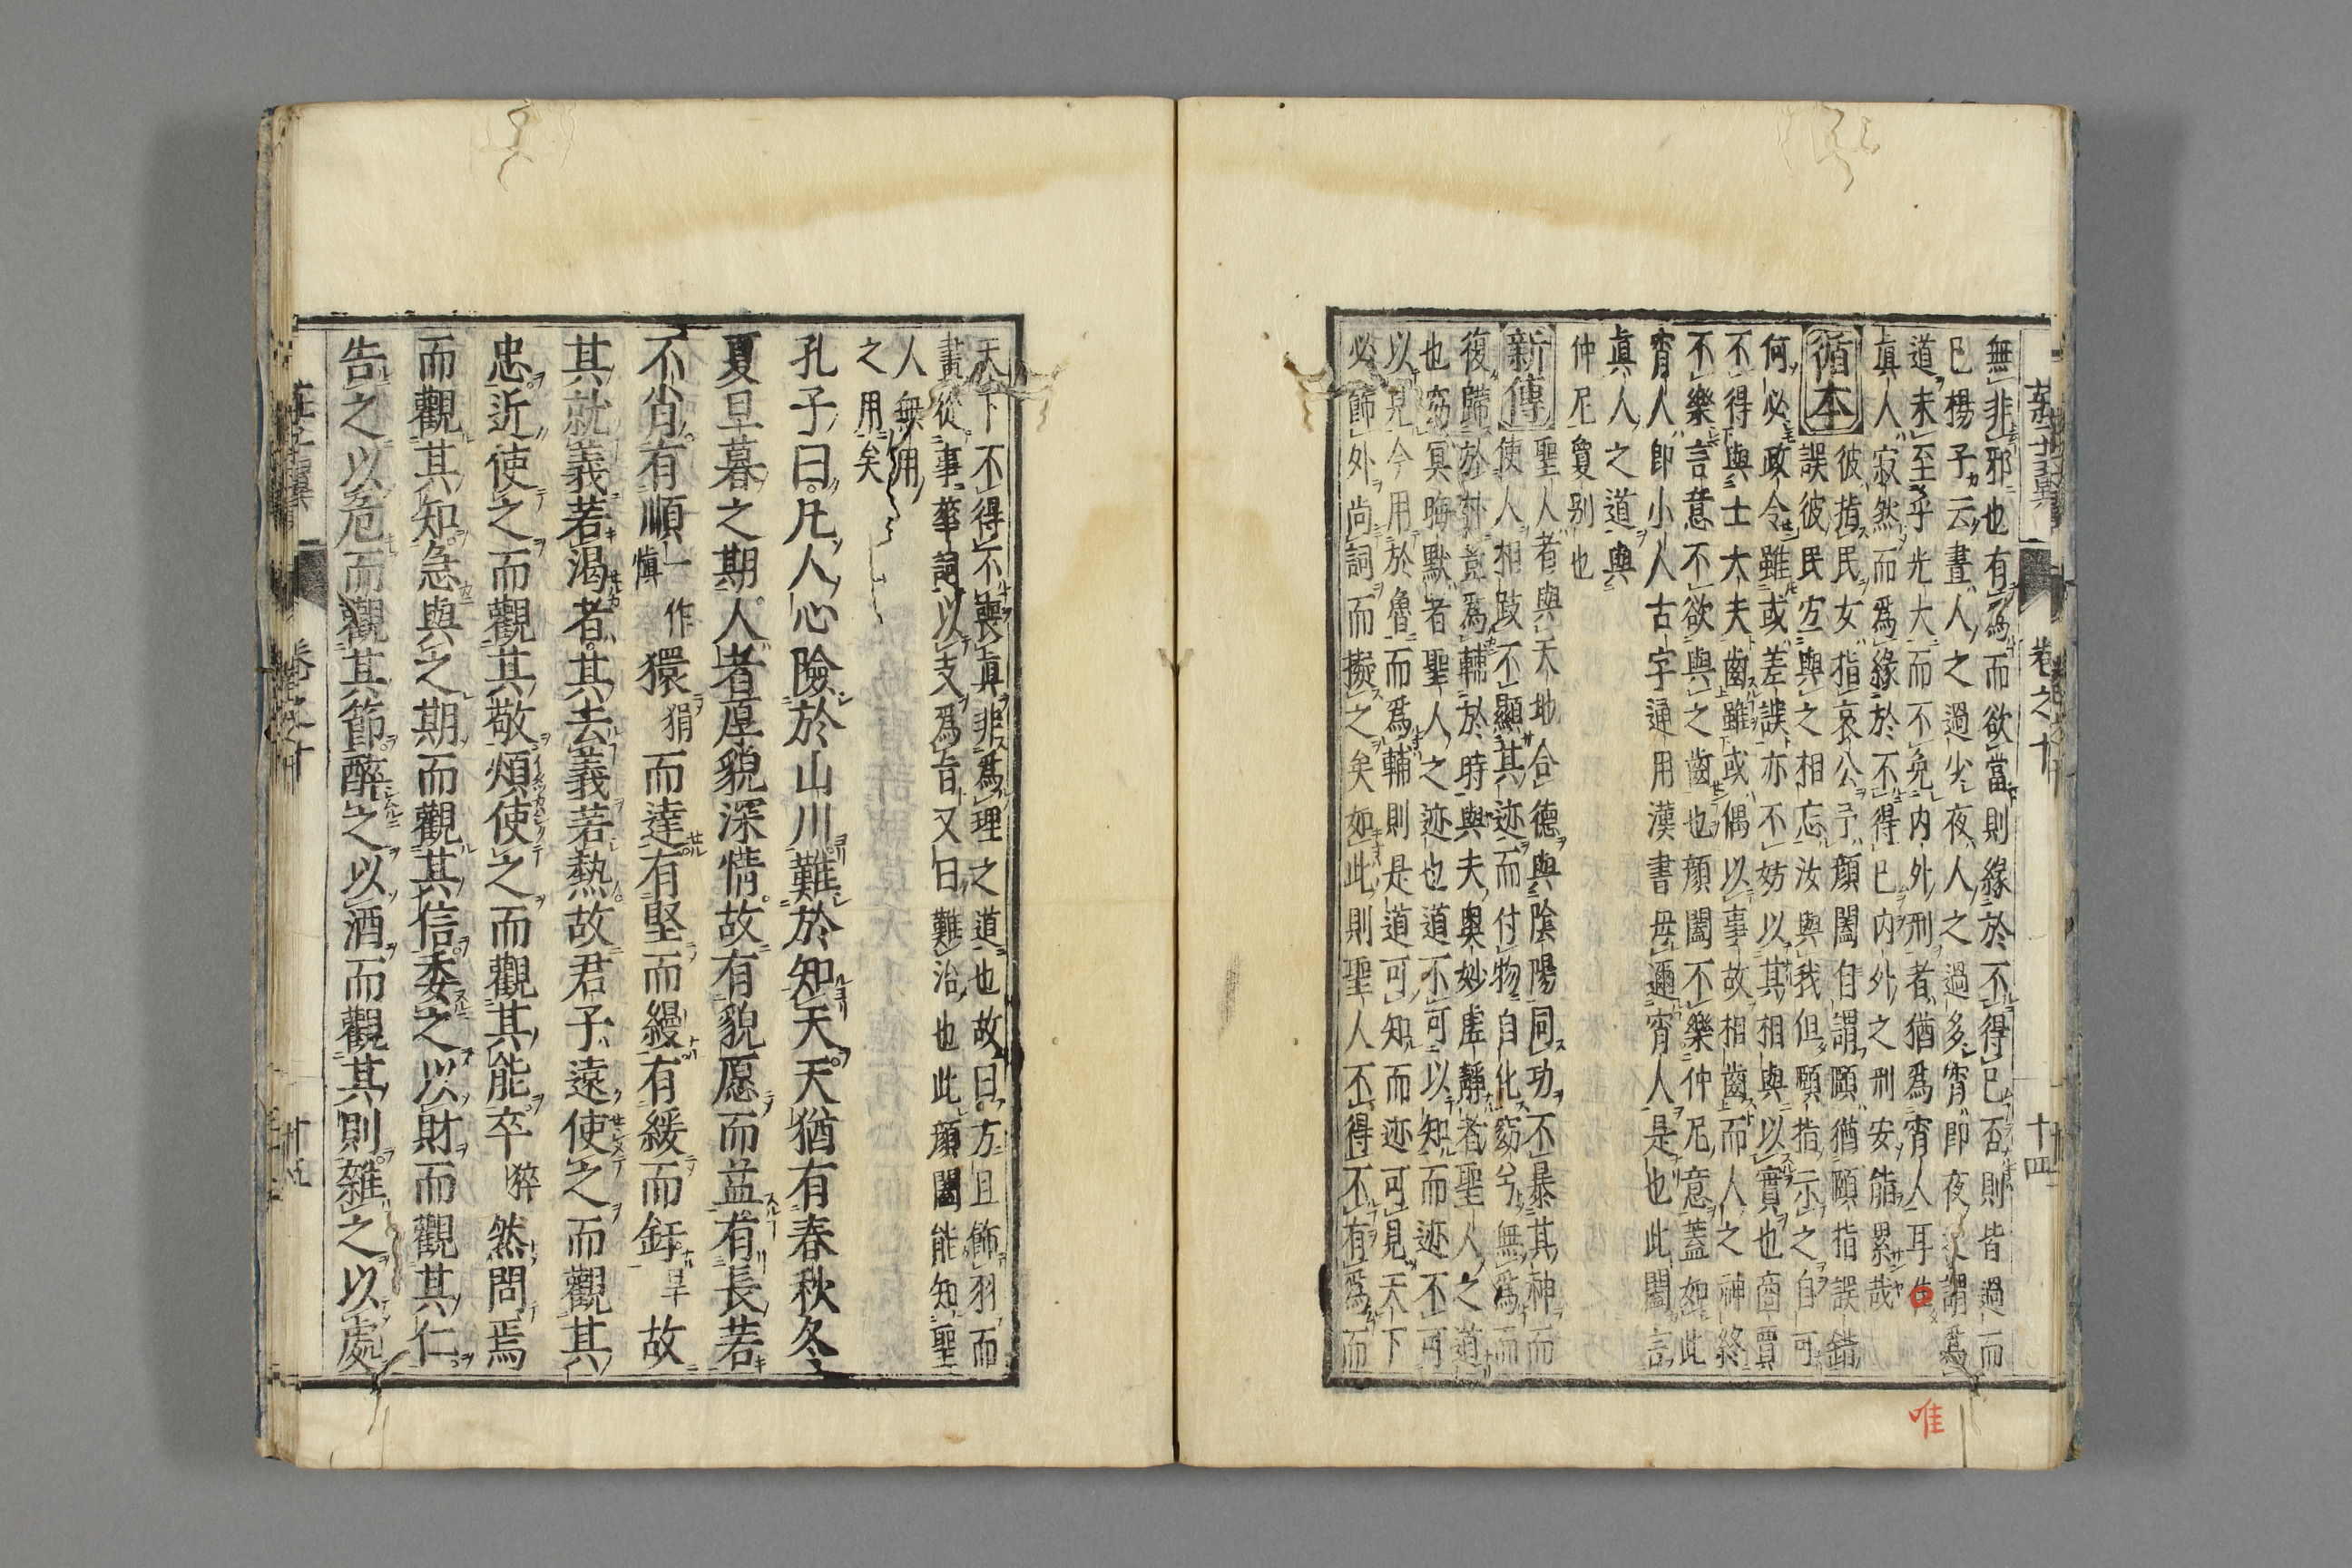 無非邪也有爲而欲當則緣於不得已否則皆過而
已楊子云晝人之過少夜人之過多宵卽夜之謂爲
道未至乎光大而不免內外刑者猶爲宵人耳
眞人寂然而爲緣於不得已內外之刑安能累哉
循本 彼指民女指哀公予顏闔自謂頤猶頤指誤錯
誤彼民宜與之相忘汝與我但頤指示之自可
何必政令雖或差誤亦不妨以其相與以實也商賈
不得與士大夫齒雖或偶以事故相齒而人之神終
不樂言意不欲與之齒也顏闔不樂仲尼意蓋如此
宵人卽小人古字通用漢書毋邇宵人是也此闔言
眞人之道與
仲尼敻别也
新傳 聖人者與天地合德與陰陽同功不暴其神而
使人相跂不顯其迹而付物自化窈兮無爲而
復歸於朴竟爲輔於時與夫奧妙虛靜者聖人之道
也窈冥晦默者聖人之迹也道不可以知而迹不可
以見今用於魯而爲輔則是道可知而迹可見天下
必飾外尚詞而擬之矣如此則聖人不得不有爲而
莊子翼 卷之十 十四
天下不得不喪眞非爲理之道也故曰方且飾羽而
畫從事華詞以支爲旨又曰難治也此顏闔能知聖
人無用
之用矣
孔子曰凡人心險於山川難於知天天猶有春秋冬
夏旦暮之期人者厚貌深情故有貌愿而益有長若
不肖有順一作慎獧狷而達有堅而縵有緩而釬旱故
其就義若渴者其去義若熱故君子遠使之而觀其
忠近使之而觀其敬煩使之而觀其能卒猝然問焉
而觀其知急與之期而觀其信委之以財而觀其仁
告之以危而觀其節醉之以酒而觀其則雜之以處
唯